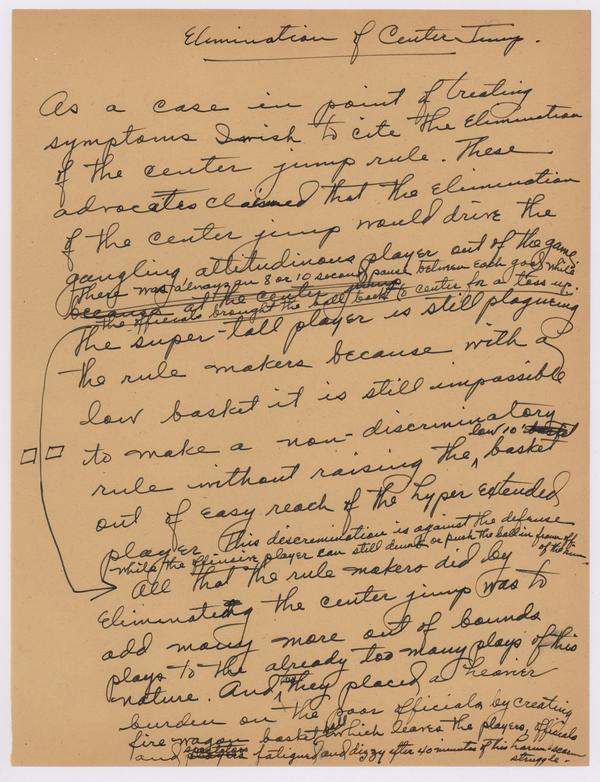 Elimination of Center Jump.
As a case in point of treating
symptoms I wish to cite the Elimination
of the center jump rule. These
advocates claimed that the Elimination
of the center jump would drive the
gangling altitudinous player out of the game
There was always an 8 or 10 second pause between each goal while
because of the center jump.
the officials brought the ball back to center for a toss up.
the super-tall player is still plagueing
the rule makers because with a
low basket it is still impossible
to make a non-discriminatory
low 10' basket
rule without raising the basket
out of easy reach of the hyper Extended
player. This discrimination is against the defense
while the offensive player can still dunk or push the ball in from off
of the rim
All that the rule makers did by
Eliminating the center jump was to
add many more out of bounds
plays to the already too many plays of this
nature. And they placed a heavier
burden on the poor officials by creating
fire wagon basket ball which leaves the players, officials
and spectators fatigued and dizzy after 40 minutes of this harum-scarum
struggle.